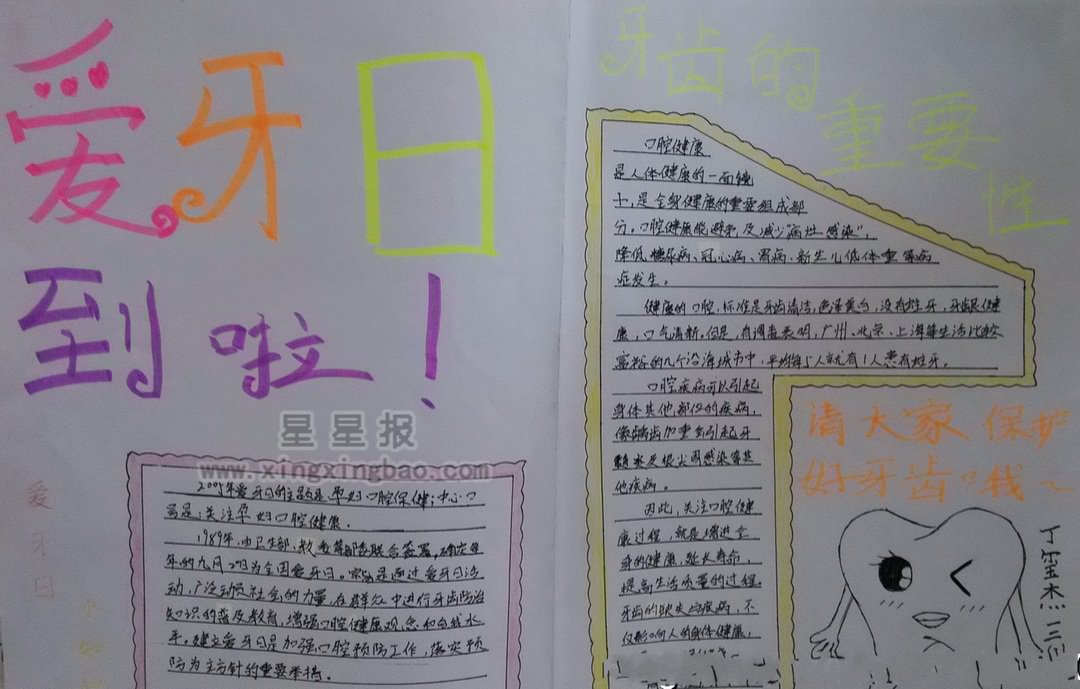 爱牙日
到啦！
星星报
www.xingxingbao.com
爱牙日
2005年爱牙日的主题是孕妇口腔保健；中心口
号是：关注孕妇口腔健康．
1989年，由卫生部、教委等部委联合签署，确定每
年的九月20日为全国爱牙日。宗旨是通过爱牙日活
动，广泛动员社会的力量，在群众中进行牙齿防治
知识的普及教育，增强口腔健康观念和自我水
平。建立爱牙日是加强口腔预防工作，落实预
防为主方针的重要举措。
牙齿的
重要
性
口腔健康
是人体健康的一面镜
十，是全身健康的重要组成部
分。口腔健康能避免及减少"病灶感染"，
降低糖尿病、冠心病、胃病、新生儿低体重等病
症发生。
健康的口腔，标准是牙齿清洁，色泽美白，没有蛀牙，牙龈健
康，口气清新。但是，有调查表明，广州、北京、上海等生活比较
富裕的几个沿海城市中，平均每5人就有1人患有蛀牙。
口腔疾病可以引起
身体其他部位的疾病，
像龋齿加重会引起牙
髓炎及根尖周感染等其
他疾病。
因此，关注口腔健
康过程，就是增进全
身的健康，延长寿命，
提高生活质量的过程。
牙齿的缺失与疾病，不
仅影响人的身体健康，
请大家保护
好牙齿哦～
丁雪杰 三（